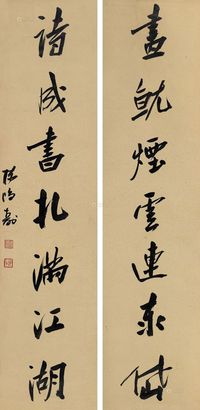 畫就煙雲連泰岱
詩成書札滿江湖
陳鴻壽